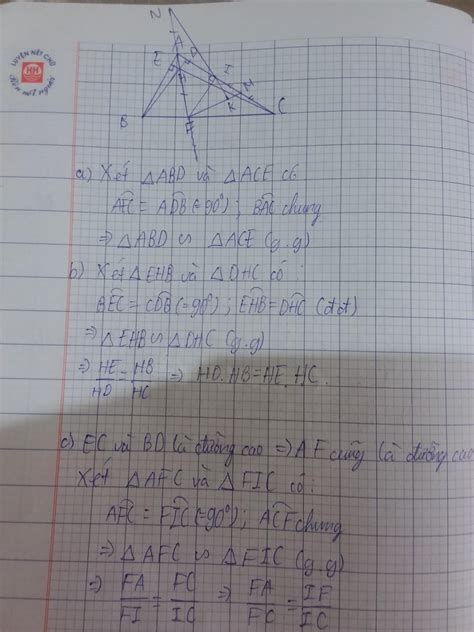 LUYỆN NÉT CHỮ
NH
Rèn nết người
N
A
E
D
I
K
B
F
C
a) Xét △ABD và △ACE có
AEC = ADB (=90°) ; BAC chung
⇒ △ABD ∽ △ACE (g.g)
b) Xét △EHB và △DHC có
BEC = CDB (=90°) ; EHB = DHC (đđ)
⇒ △EHB ∽ △DHC (g.g)
⇒ HE/HD = HB/HC ⇒ HD.HB = HE.HC
c) EC và BD là đường cao ⇒ AF cũng là đường cao
Xét △AFC và △FIC có:
AFC = FIC (=90°) ; ACF chung
⇒ △AFC ∽ △FIC (g.g)
⇒ FA/FI = FC/IC ⇒ FA/FC = IF/IC